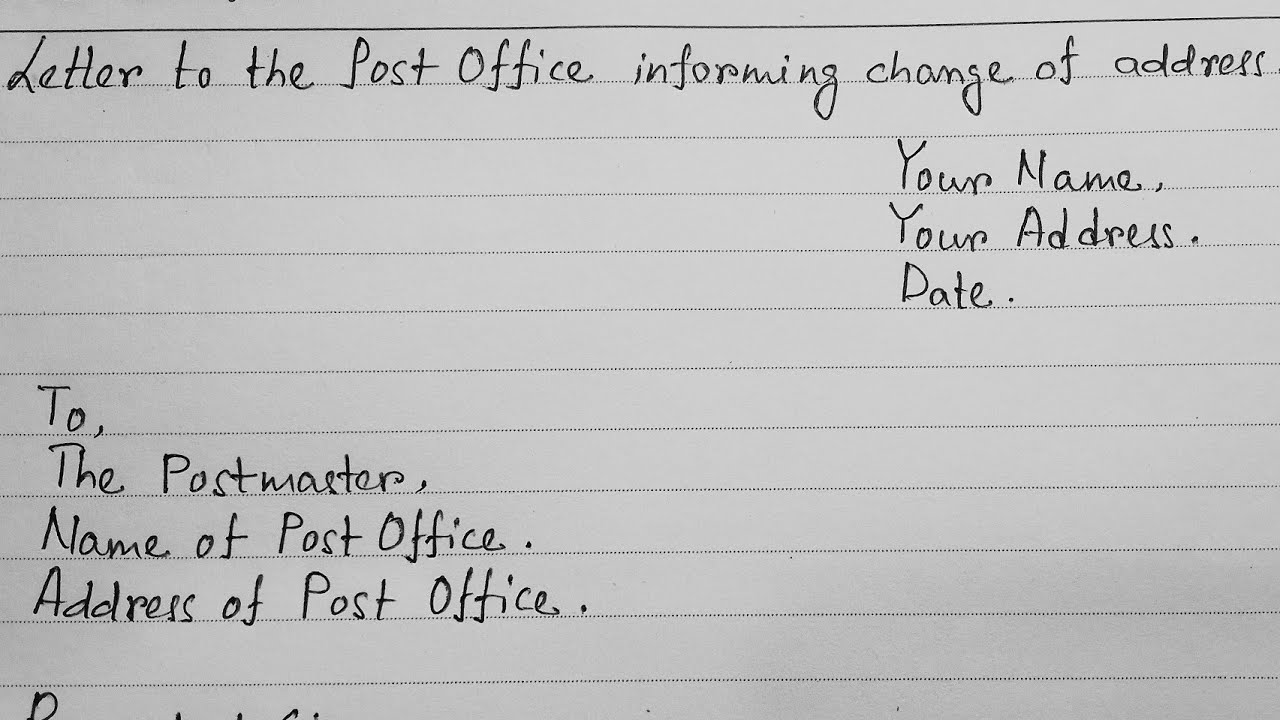 Letter to the Post Office informing change of address.
Your Name,
Your Address.
Date.
To,
The Postmaster,
Name of Post Office.
Address of Post Office.